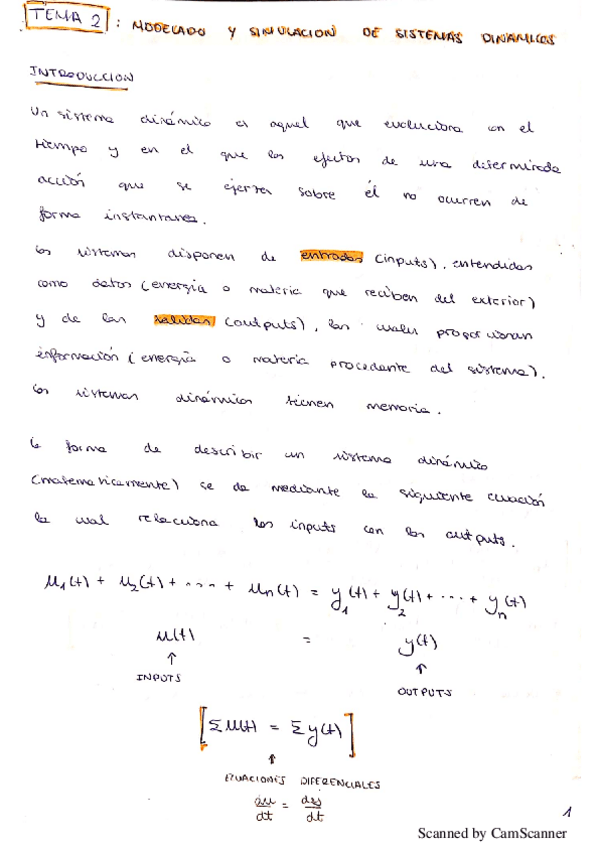 TEMA 2 : MODELADO Y SIMULACION DE SISTEMAS DINAMICOS
INTRODUCCION
Un sistema dinámico es aquel que evoluciona con el
tiempo y en el que los efectos de una determinada
acción que se ejerza sobre él no ocurren de
forma instantanea.
los sistemas disponen de entradas (inputs), entendidas
como datos (energía o materia que reciben del exterior)
y de las salidas (outputs), las cuales proporcionan
información (energía o materia procedente del sistema).
los sistemas dinámicos tienen memoria.
la forma de describir un sistema dinámico
(matematicamente) se da mediante la siguiente ecuación
la cual relaciona los inputs con los outputs.
u₁(t) + u₂(t) + ---- + un(t) = y₁(t) + y₂(t) + ---- + yn(t)
u(t) = y(t)
↑ ↑
INPUTS
OUTPUTS
[Σ u(t) = Σ y(t)]
↑
ECUACIONES DIFERENCIALES
du/dt = dy/dt
1
Scanned by CamScanner